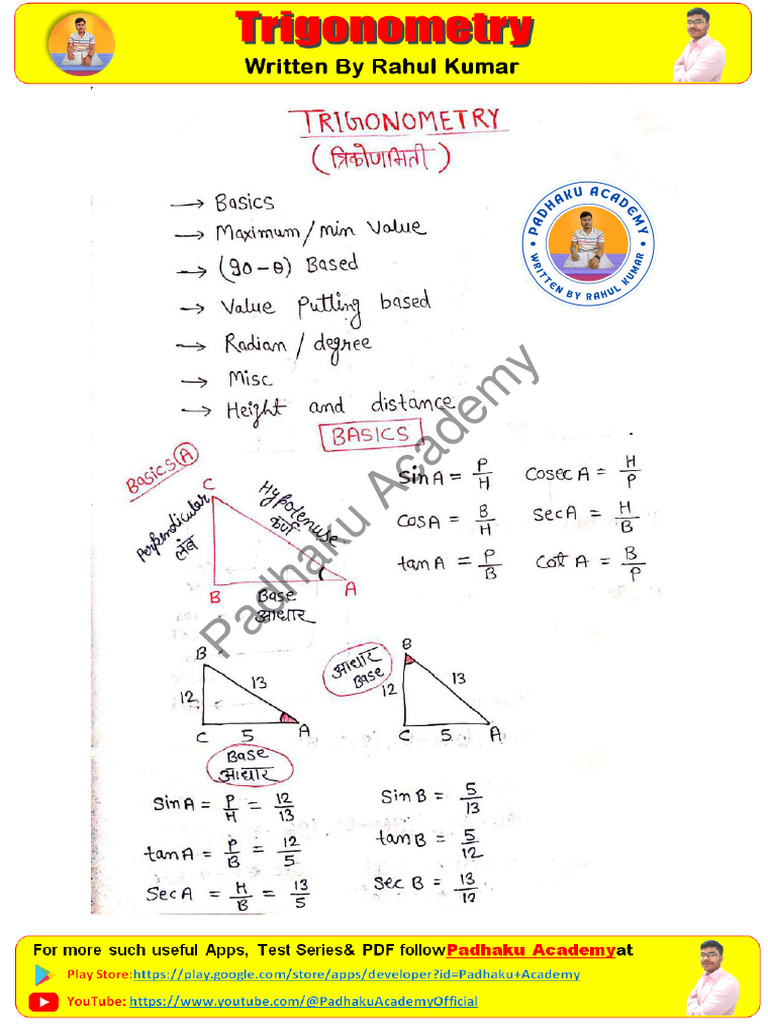 Trigonometry
Written By Rahul Kumar
TRIGONOMETRY
(त्रिकोणमिती)
→ Basics
→ Maximum/min Value
→ (90-θ) Based
→ Value Putting based
→ Radian / degree
→ Misc
→ Height and distance
• PADHAKU ACADEMY •
WRITTEN BY RAHUL KUMAR
BASICS
Basics A
C
Perpendicular
लंब
Hypotenuse
कर्ण
B
A
Base
आधार
sinA = P/H cosecA = H/P
cosA = B/H secA = H/B
tanA = P/B cotA = B/P
Padhaku Academy
B
12
13
C 5 A
Base
आधार
आधार
Base
B
12
13
C 5 A
sinA = P/H = 12/13
tanA = P/B = 12/5
SecA = H/B = 13/5
SinB = 5/13
tanB = 5/12
Sec B = 13/12
For more such useful Apps, Test Series& PDF followPadhaku Academyat
Play Store:https://play.google.com/store/apps/developer?id=Padhaku+Academy
YouTube: https://www.youtube.com/@PadhakuAcademyOfficial